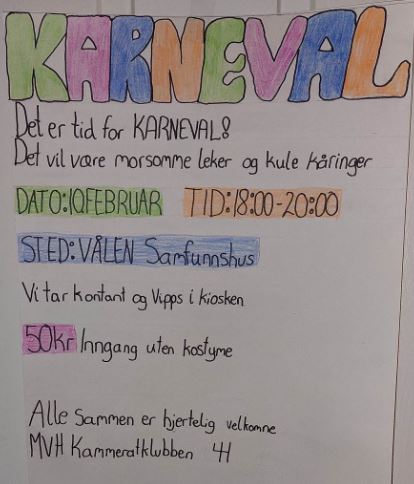 KARNEVAL
Det er tid for KARNEVAL!
Det vil være morsomme leker og kule kåringer
DATO:10.FEBRUAR TID:18:00-20:00
STED: VÅLEN Samfunnshus
Vi tar kontant og Vipps i kiosken
50kr Inngang uten kostyme
Alle sammen er hjertelig velkomne
MVH Kammeratklubben 4H